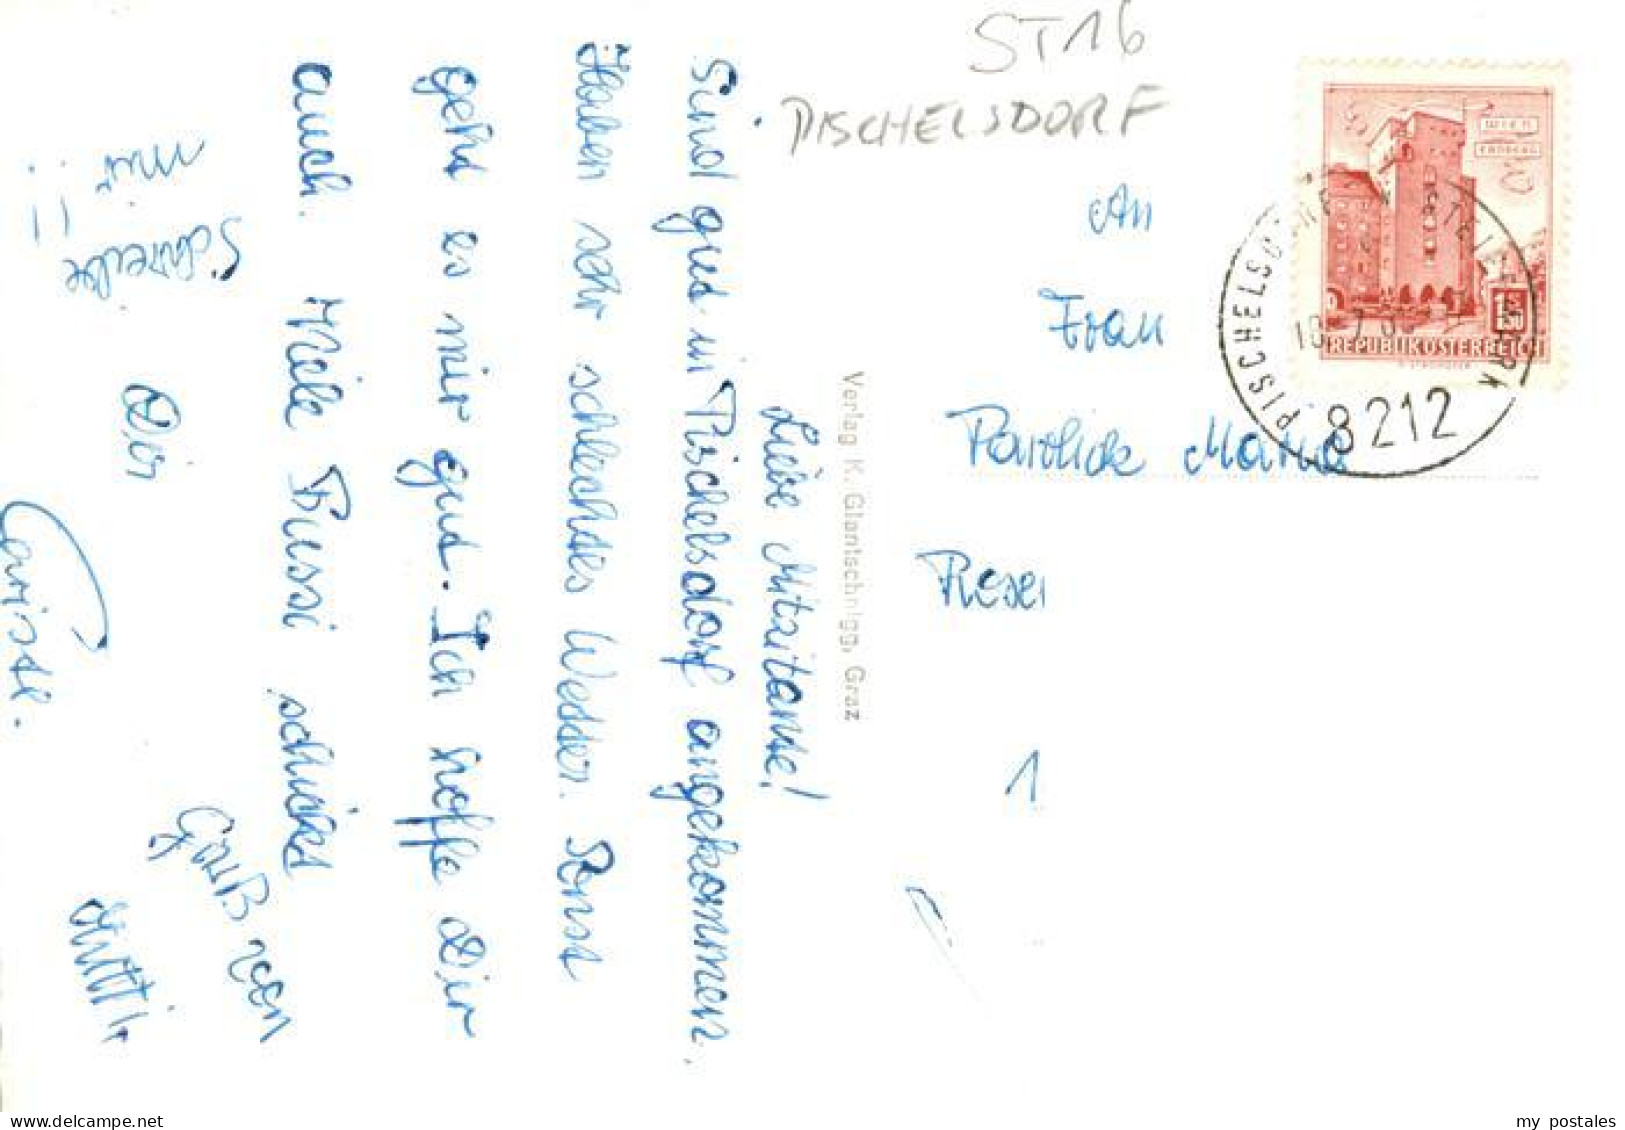 ST16
PISCHELSDORF
WIEN
ERDBERG
REPUBLIK ÖSTERREICH
8212
An
Frau
Maria
1
Verlag K. Glantschnigg, Graz
Liebe Mitzitante!
Sind gut in Pischelsdorf angekommen.
Haben sehr schlechtes Wetter. Sonst
geht es mir gut. Ich hoffe Dir
auch. Viele Bussi schickt
Dir
Gruß von
Mutti
Schreibe
mir!!